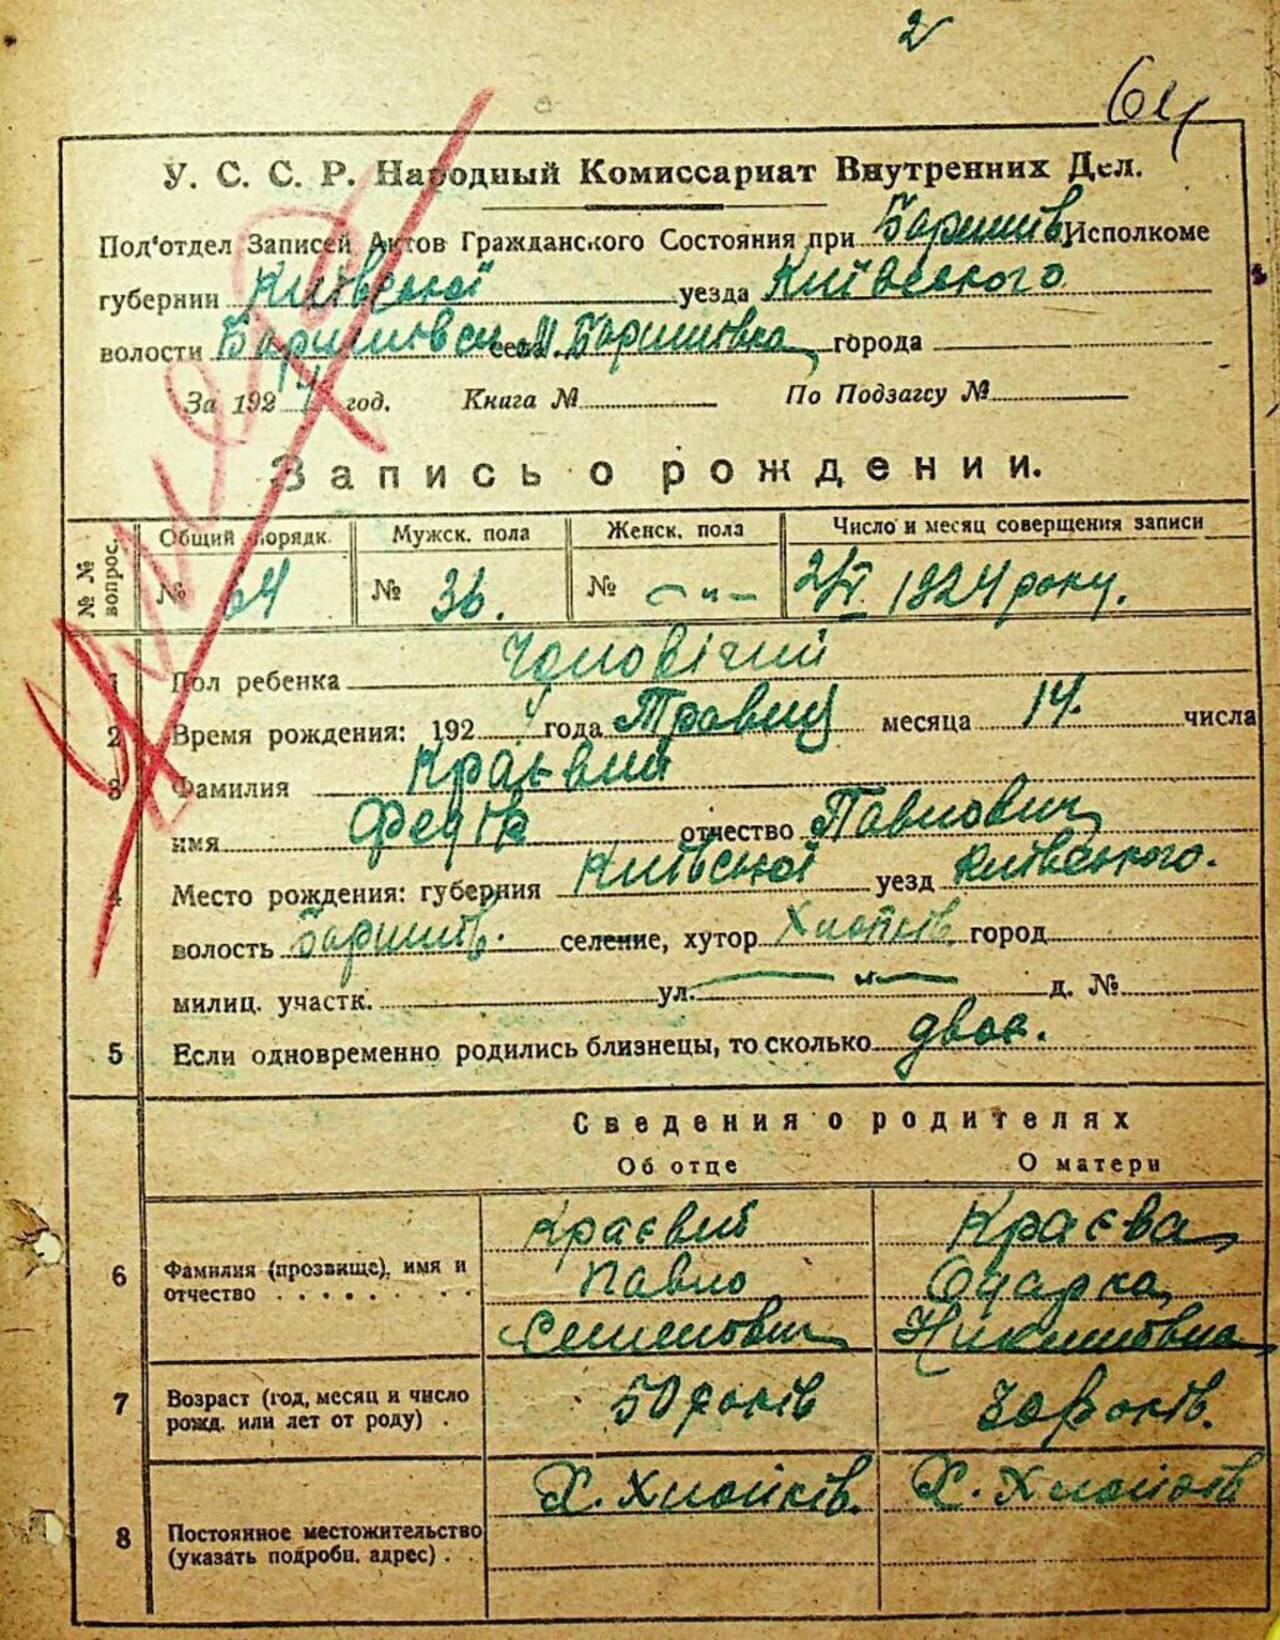 2
64
У. С. С. Р. Народный Комиссариат Внутренних Дел.
Под'отдел Записей Актов Гражданского Состояния при Баришів Исполкоме
губернии Київської уезда Київського
волости Баришовск села М. Баришовка города
За 1924 год. Книга № По Подзагсу №
Запись о рождении.
№ № вопрос. Общий порядк. Мужск. пола Женск. пола Число и месяц совершения записи
№ 64 № 36. № — " — 2/VI 1924 року.
1 Пол ребенка Чоловічий
2 Время рождения: 1924 года Травня месяца 14. числа
3 Фамилия Краєвий
имя Федір отчество Павлович
4 Место рождения: губерния Київської уезд Київського.
волость Баришів. селение, хутор город
милиц. участк. ул. — " — д. №
5 Если одновременно родились близнецы, то сколько двоє.
Сведения о родителях
Об отце О матери
Краєвий Краєва
6 Фамилия (прозвище), имя и отчество Павло Одарка
Семенович Никитовна
7 Возраст (год, месяц и число рожд. или лет от роду) . 50 років 30 років.
8 Постоянное местожительство (указать подробн. адрес) . . Х. Х.